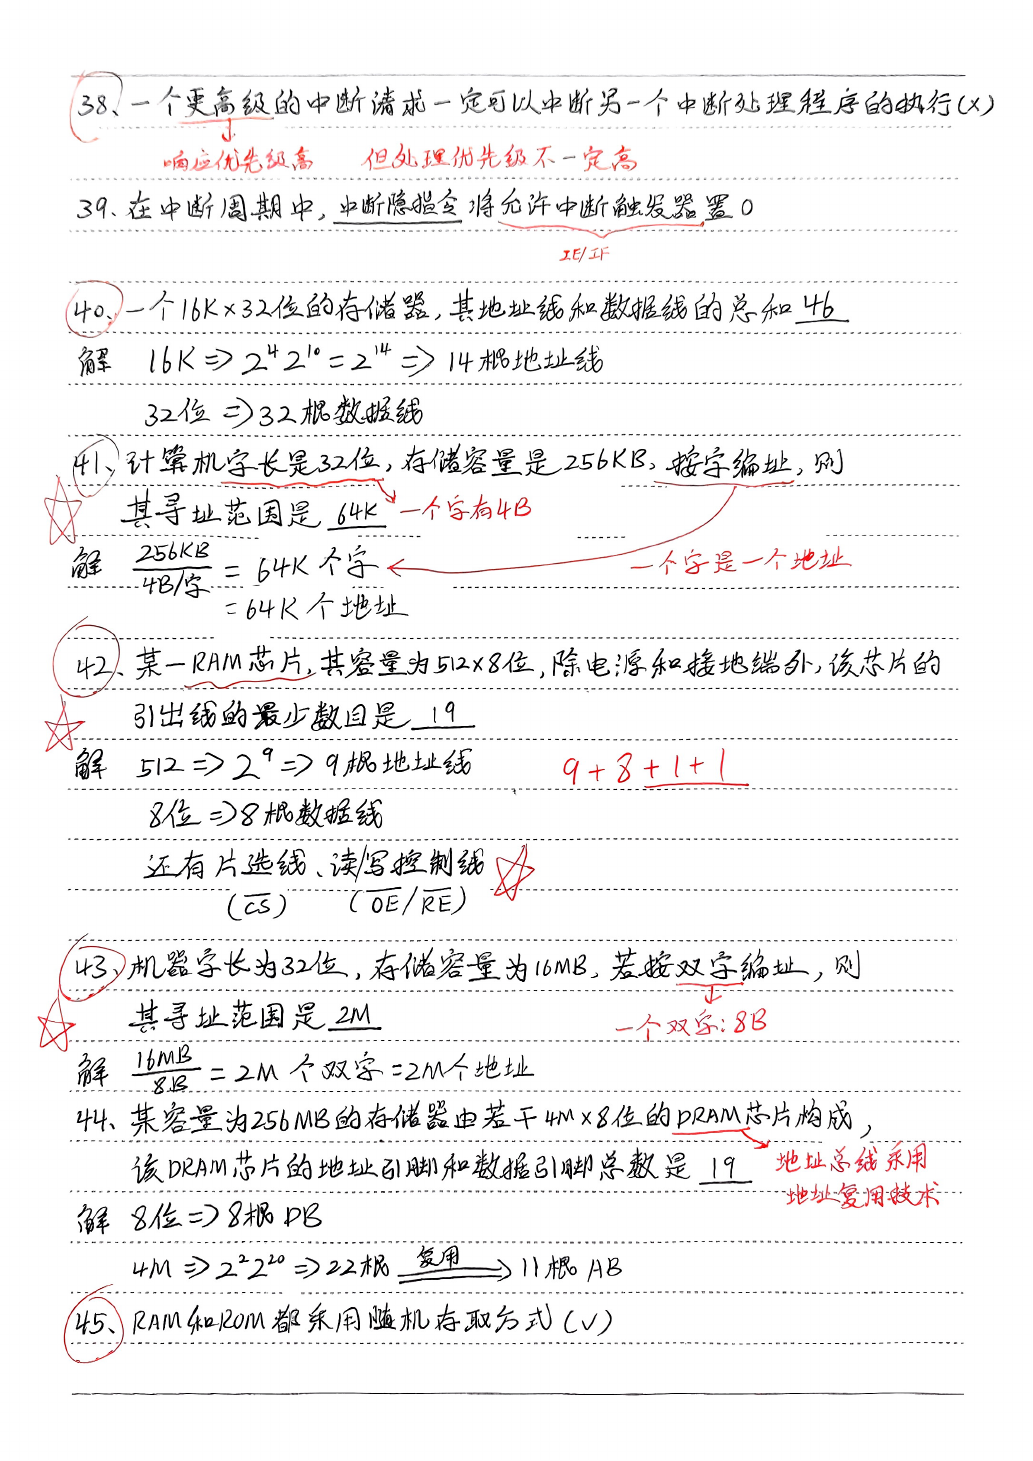 38、一个更高级的中断请求一定可以中断另一个中断处理程序的执行(×)
响应优先级高 但处理优先级不一定高
39、在中断周期中,中断隐指令将允许中断触发器置0
IE/IF
40、一个16K×32位的存储器,其地址线和数据线的总和46
解 16K⇒2⁴2¹⁰=2¹⁴⇒14根地址线
32位⇒32根数据线
41、计算机字长是32位,存储容量是256KB,按字编址,则
其寻址范围是 64K 一个字有4B
解 256KB/4B/字 = 64K个字 一个字是一个地址
=64K个地址
42、某一RAM芯片,其容量为512×8位,除电源和接地端外,该芯片的
引出线的最少数目是 19
解 512⇒2⁹⇒9根地址线 9+8+1+1
8位⇒8根数据线
还有片选线、读/写控制线
(C̅S̅) (O̅E̅/R̅E̅)
43、机器字长为32位,存储容量为16MB,若按双字编址,则
其寻址范围是 2M 一个双字:8B
解 16MB/8B = 2M个双字=2M个地址
44、某容量为256MB的存储器由若干4M×8位的DRAM芯片构成,
该DRAM芯片的地址引脚和数据引脚总数是 19 地址总线采用
地址复用技术
解 8位⇒8根DB
4M⇒2²2²⁰⇒22根 复用⇒11根AB
45、RAM和ROM都采用随机存取方式(√)